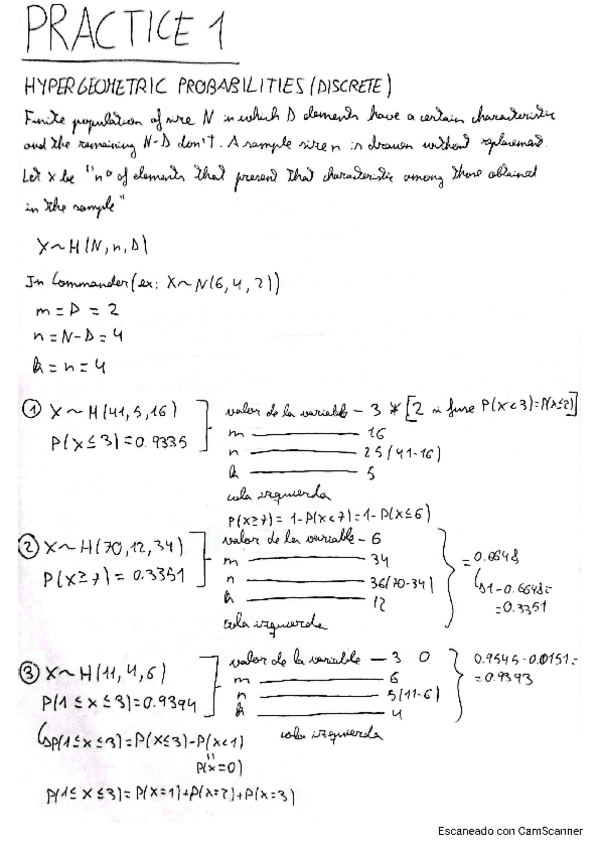 PRACTICE 1
HYPERGEOMETRIC PROBABILITIES (DISCRETE)
Finite population of size N in which D elements have a certain characteristic
and the remaining N-D don't. A sample size n is drawn without replacement.
Let x be "nº of elements that present that characteristic among those obtained
in the sample"
X~H(N,n,D)
In Commander (ex: X~N(6,4,2))
m = D = 2
n = N-D = 4
k = n = 4
① X~H(41,5,16)
P(X≤3)=0.9335
valor de la variable - 3 * [2 si fuese P(X<3)=P(X≤2)]
m 16
n 25 (41-16)
k 5
cola izquierda
② X~H(70,12,34)
P(X≥7) = 0.3351
P(X≥7) = 1-P(X<7)=1-P(X≤6)
valor de la variable - 6
m 34
n 36(70-34)
k 12
cola izquierda
= 0.6648
1-0.6648=
=0.3351
③ X~H(11,4,6)
P(1≤X≤3)=0.9394
P(1≤X≤3)=P(X≤3)-P(X<1)
"
P(X=0)
P(1≤X≤3)=P(X=1)+P(X=2)+P(X=3)
valor de la variable - 3 0
m 6
n 5(11-6)
k 4
cola izquierda
0.9545-0.0151=
=0.9393
Escaneado con CamScanner